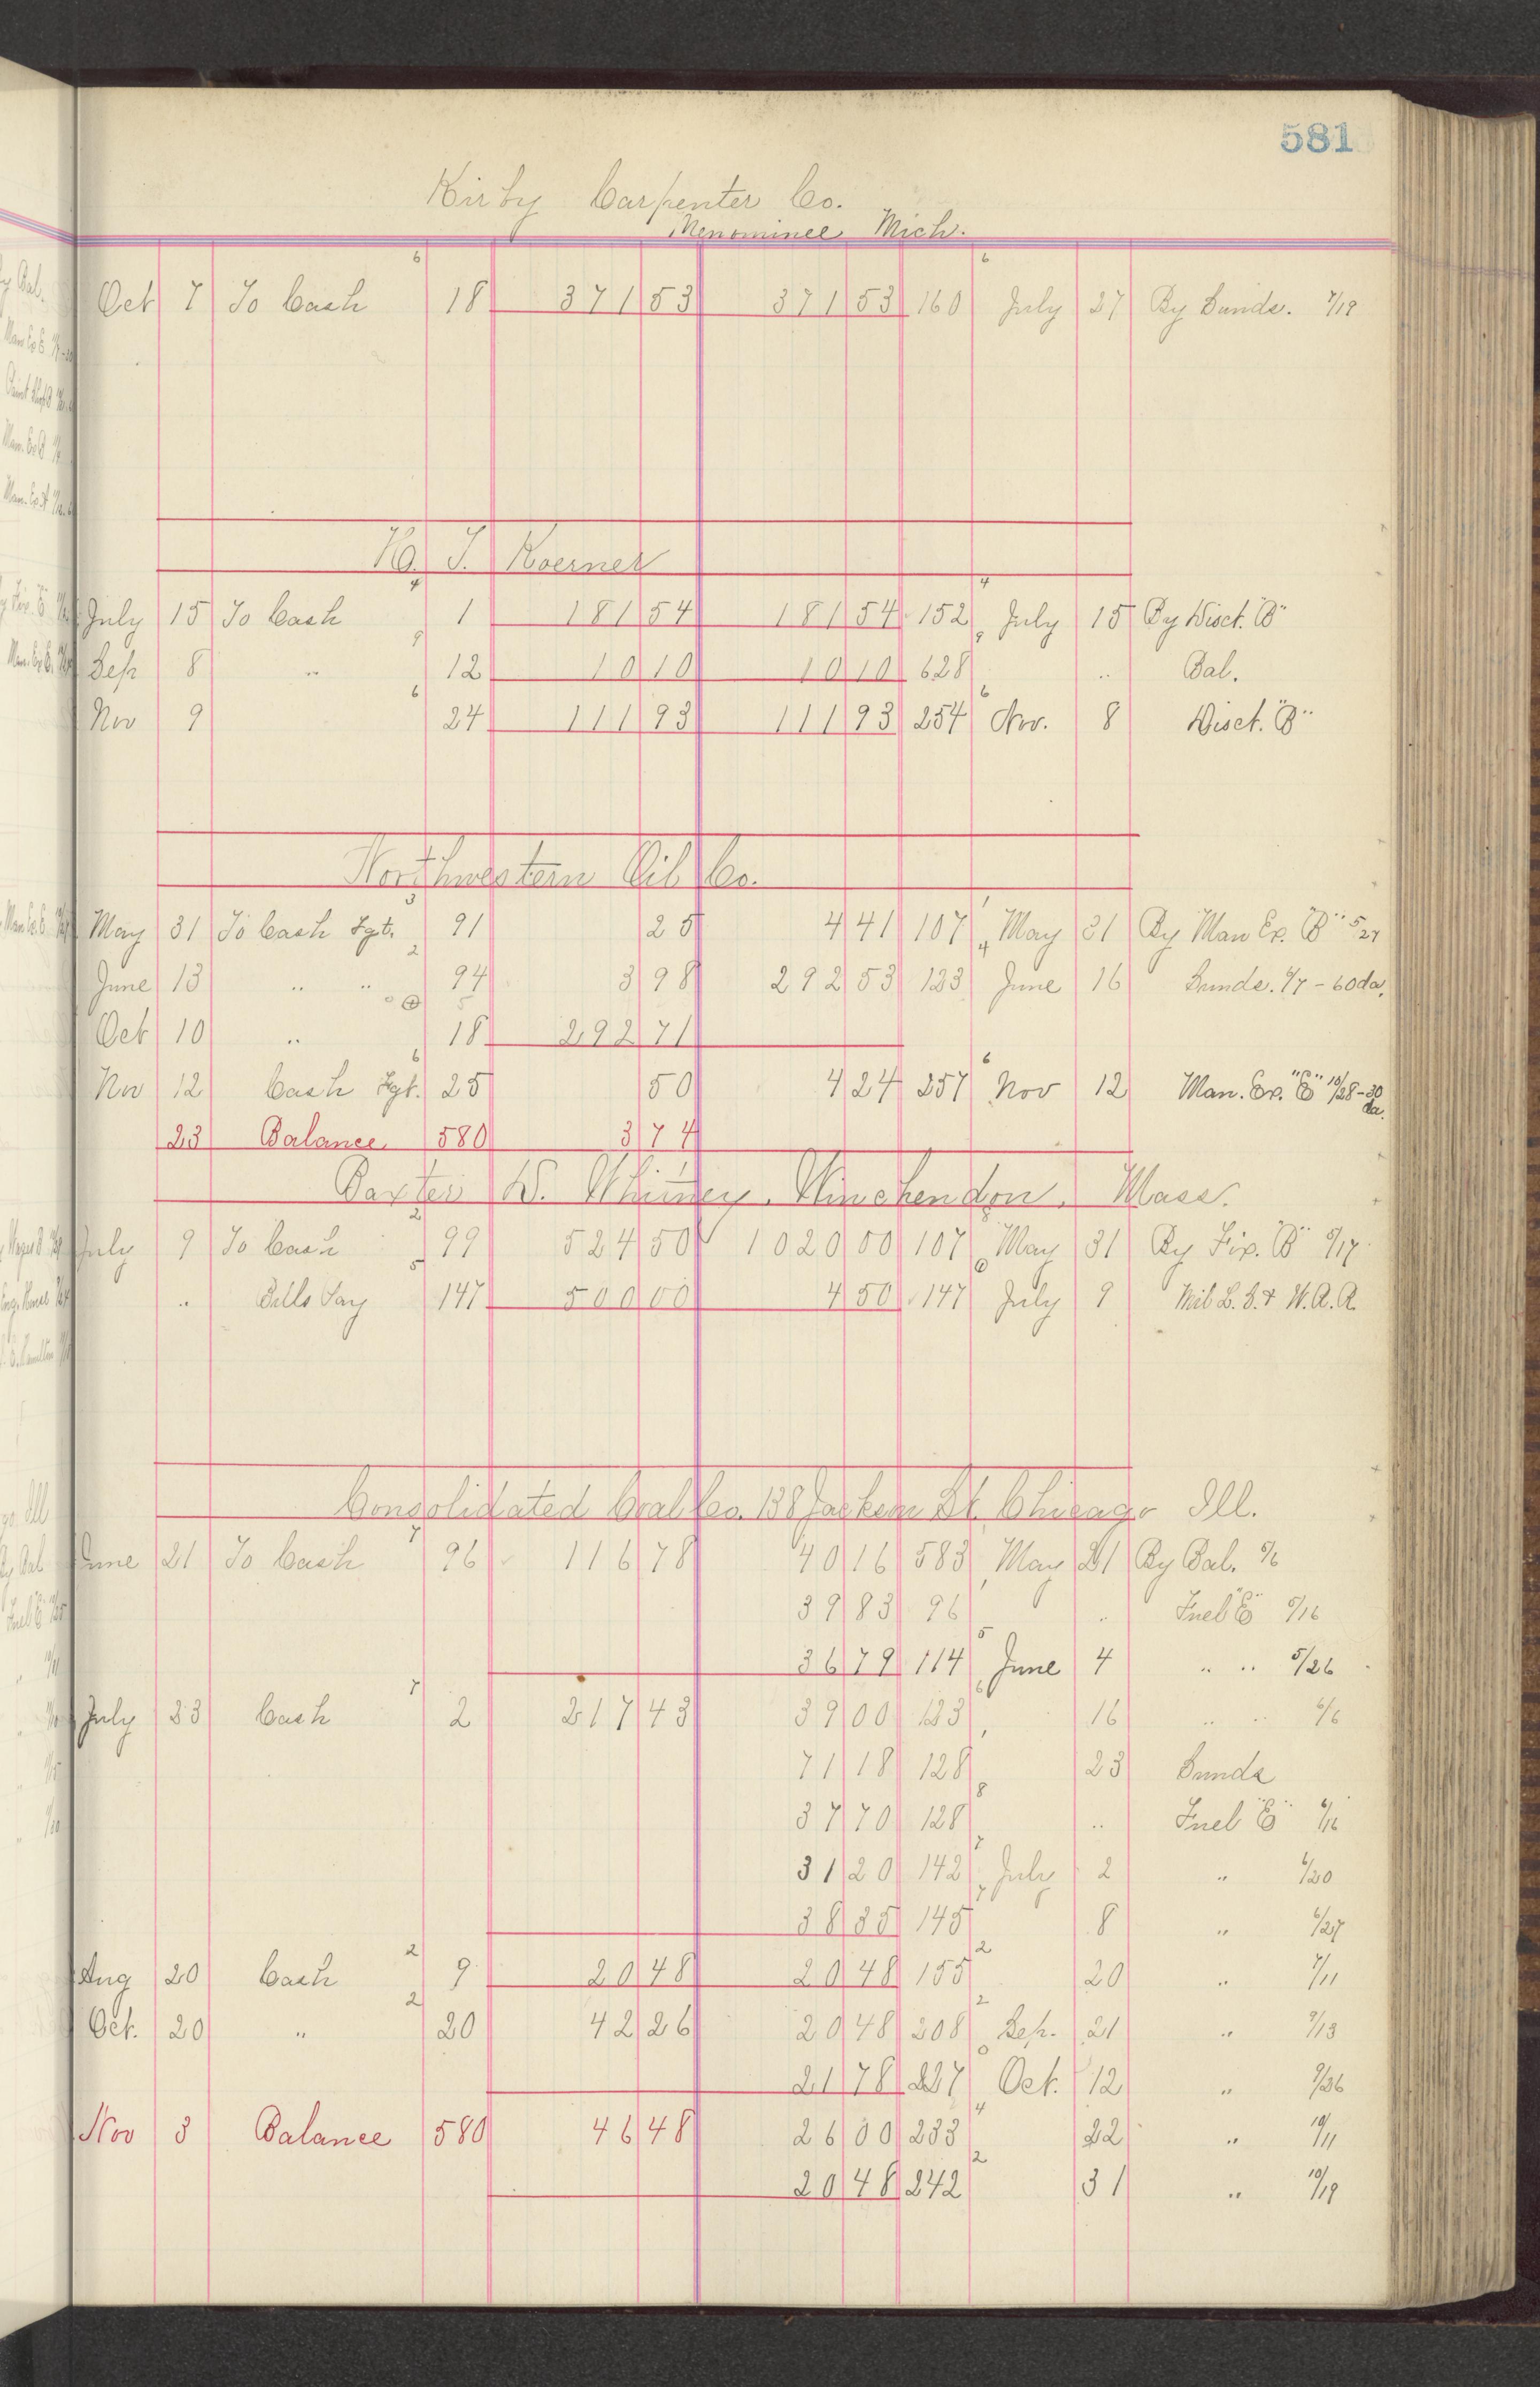 581
Kirby Carpenter Co.
Menominee Mich.
Oct 7 To Cash 18 371 53 371 53 160 July 27 By Sunds. 7/19
H. T. Koerner
July 15 To Cash 1 181 54 181 54 152 July 15 By Disct. "B"
Sep 8 " 12 10 10 10 10 628 " Bal.
Nov 9 24 111 93 111 93 254 Nov. 8 Disct. "B"
Northwestern Oil Co.
May 31 To Cash Fgt. 91 25 4 41 107 May 31 By Man Ex. "B" 5/27
June 13 " " 94 3 98 292 53 123 June 16 Sunds. 6/7 - 60 da.
Oct 10 " 18 292 71
Nov 12 Cash Fgt. 25 50 4 24 257 Nov 12 Man. Ex. "E" 10/28 - 30 da.
23 Balance 580 3 74
Baxter D. Whitney, Winchendon, Mass.
July 9 To Cash 99 524 50 1020 00 107 May 31 By Fix. "B" 5/17
" Bills Pay 147 500 00 4 50 147 July 9 Mil L. S. & W. R. R.
Consolidated Coal Co. 138 Jackson St. Chicago Ill.
June 21 To Cash 96 116 78 40 16 583 May 21 By Bal. 5/6
39 83 96 " Fuel "E" 5/16
36 79 114 June 4 " " 5/26
July 23 Cash 2 217 43 39 00 123 16 " " 6/6
71 18 128 23 Sunds
37 70 128 " Fuel "E" 6/16
31 20 142 July 2 " 6/20
38 35 145 8 " 6/27
Aug 20 Cash 9 20 48 20 48 155 20 " 7/11
Oct. 20 " 20 42 26 20 48 208 Sep. 21 " 9/13
21 78 227 Oct. 12 " 9/26
Nov 3 Balance 580 46 48 26 00 233 22 " 10/11
20 48 242 31 " 10/19